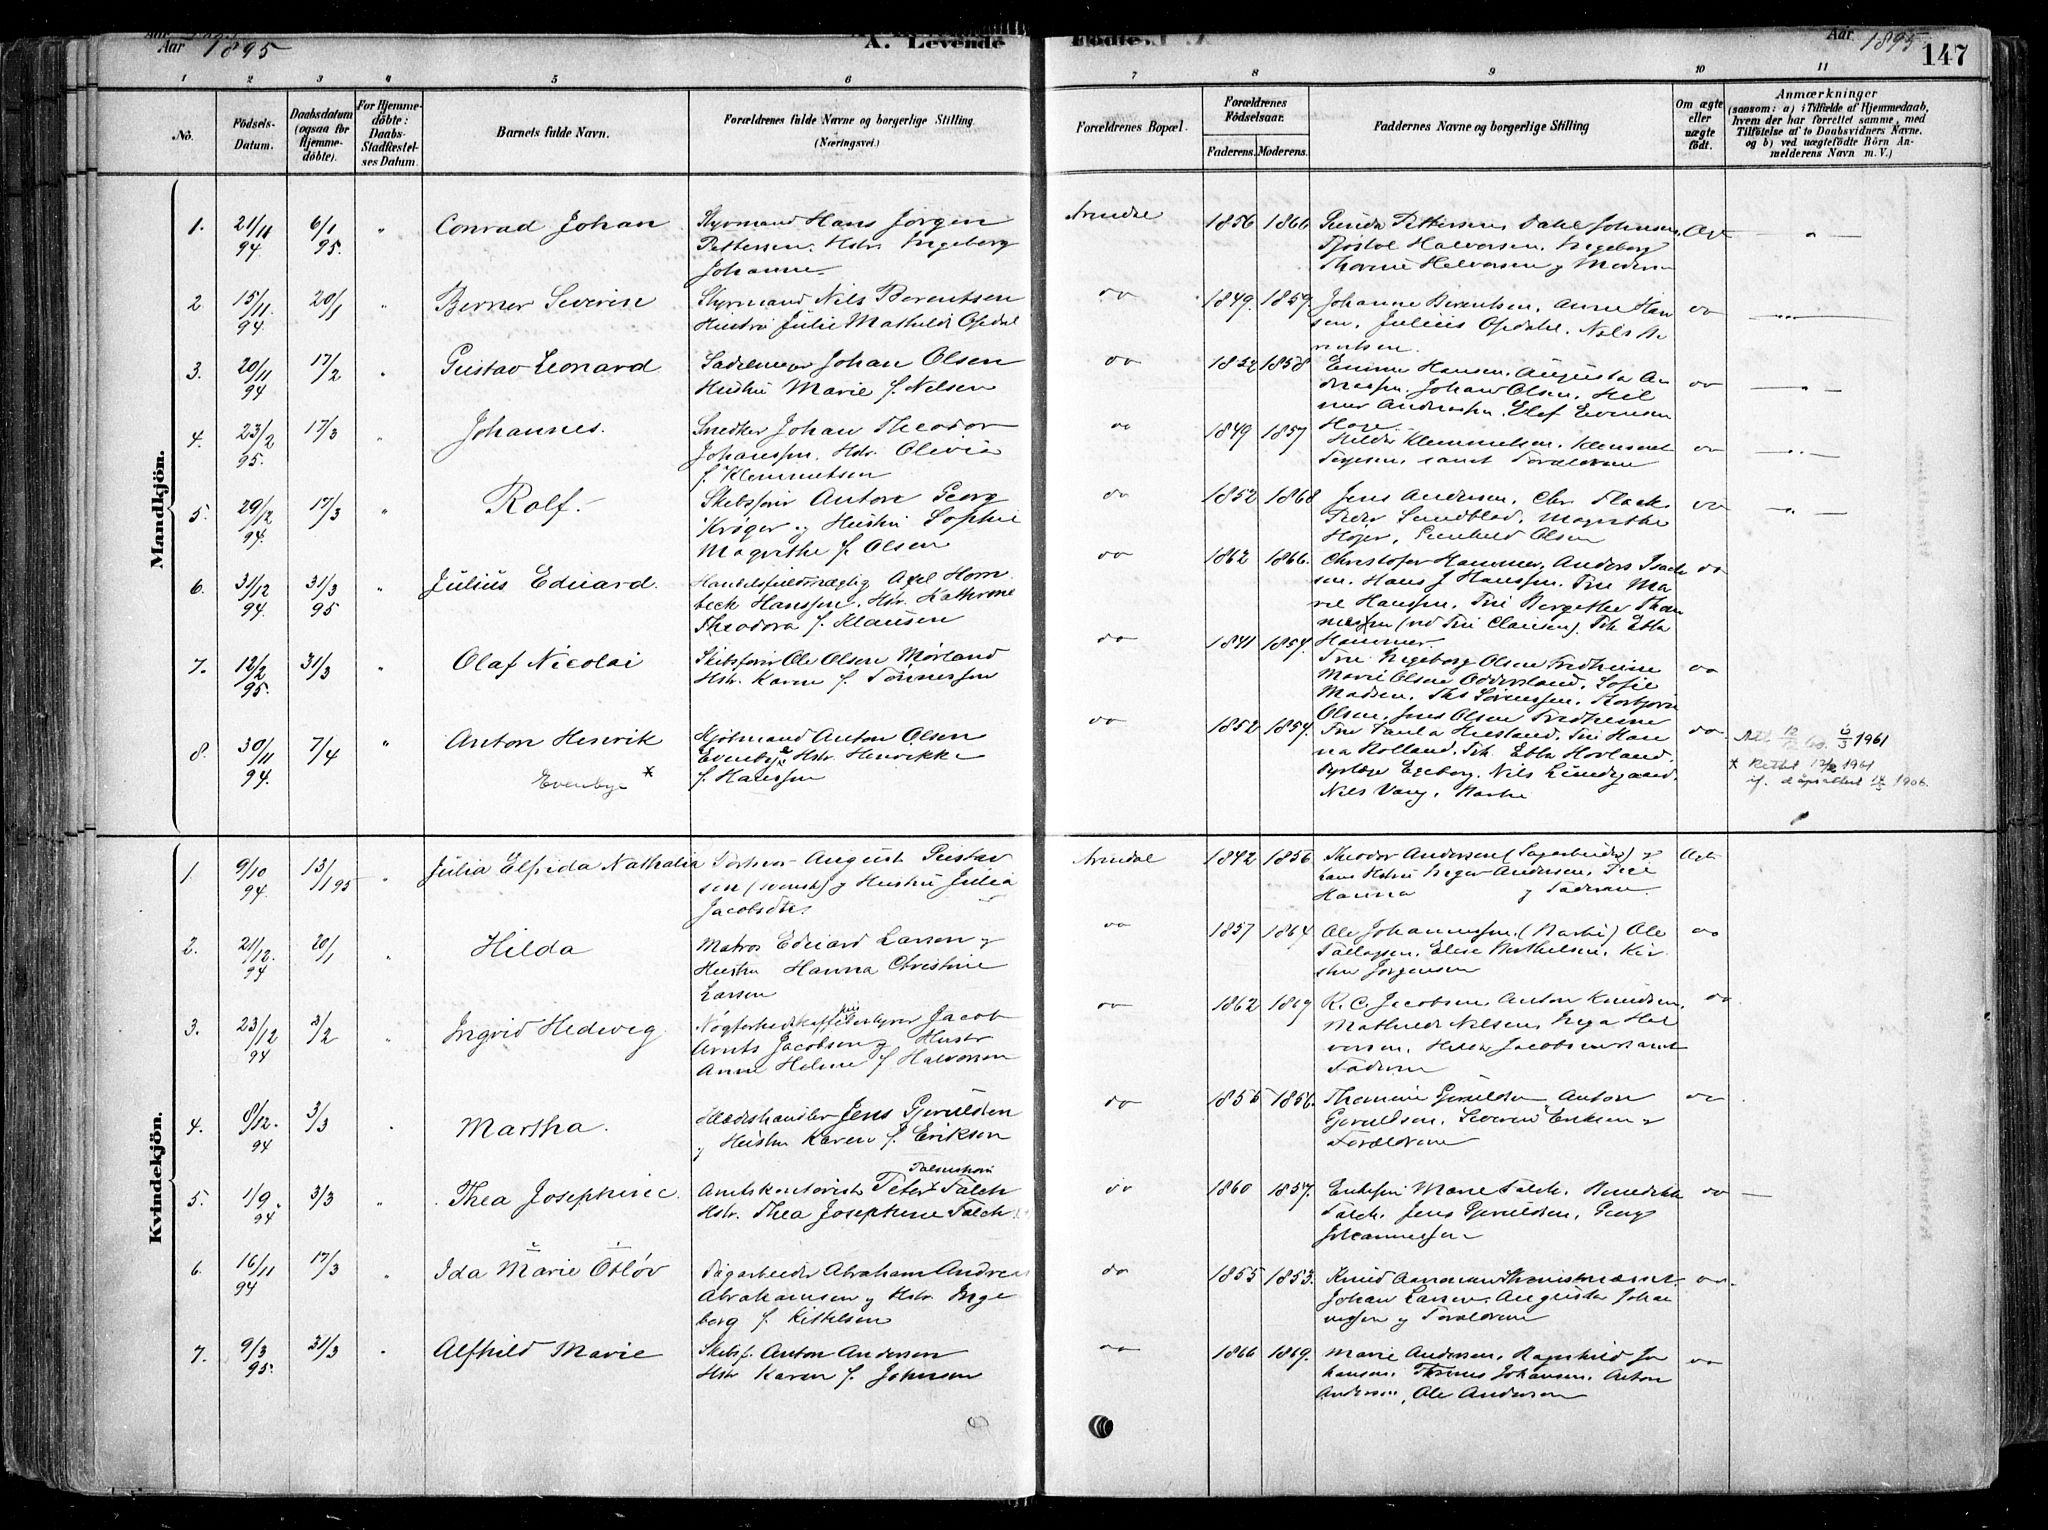 Aar 1895
A. Levende
Födte.
Aar 1895
147
1 2 3 4 5 6 7 8 9 10 11
No.
Födsels-
Datum.
Daabsdatum
(ogsaa for
Hjemme-
döbte).
For Hjemme-
döbte:
Daabs-
Stadfæstel-
ses Datum.
Barnets fulde Navn.
Forældrenes fulde Navne og borgerlige Stilling.
(Næringsvei.)
Forældrenes Bopæl.
Forældrenes
Födselsaar.
Faderens. Moderens.
Faddernes Navne og borgerlige Stilling
Om ægte
eller
uægte
födt.
Anmærkninger
(saasom: a) i Tilfælde af Hjemmedaab,
hvem der har forrettet samme, med
Tilföielse af to Daabsvidners Navne.
og b) ved uægtefödte Börn An-
melderens Navn m. V.)
Mandkjön.
1. 21/11 94 6/1 95. " Conrad Johan
Styrmand Hans Jörgen
Pettersen. Hstr. Ingeborg
Johanne
Arendal 1856 1866
Pettersen, Johnsen,
Halvorsen, Ingeborg
Halvorsen og Moderen
Ægt
2 15/11 94. 20/1 " Berner Severin
Styrmand Nils Berentsen
Hustru Julie Mathilde Opdal
do 1849. 1859.
Johanne Berentsen, Anne Han
sen, Julius Opdahl, Nils Be
rentsen.
do
3. 20/11 94 17/2 " Gustav Leonard
Sadelmager Johan Olsen
Hustru Marie f. Nelsen
do 1852 1858
Emma Hansen, Augusta An
dreasen, Johan Olsen, Hil
mar Andreasen, Evensen
do
4. 23/2 95. 17/3 " Johannes.
Snedker Johan Theodor
Johanssen, Hstr. Olivia
f. Klemmetsen
do 1849 1857
Hilda Klemmetsen, Klemmet
samt Forældrene
do
5. 29/12 94. 17/3 " Rolf.
Skibsförer Anton Georg
Kröger og Hustru Sophie
Magrethe f. Olsen
do 1852 1868
Jens Andersen, Chr. Flack
Peder Sundblad, Magrethe
Höjer, Gunhild Olsen
do
6. 31/12 94. 31/3 95 " Julius Eduard.
Handelsfuldmægtig Axel Horn
beck Hanssen, Hstr. Kathrine
Theodora f. Klausen
do 1862 1866.
Christofer Hammer, Anders Isach
sen, Hans J Hanssen, Frue Ma
rie Hanssen, Frue Bergethe Thom
messen (ved Frue Clausen), Frk Ebba
Hammer.
do
7. 12/2 95. 31/3 " Olaf Nicolai
Skibsförer Ole Olsen Mörland
Hstr. Karen f. Tönnessen
do 1841 1854.
Frue Ingeborg Olsen Fredheim
Marie Olsen Oddersland, Sofie
Madsen, Ths Sörenssen, Thorbjörn
Olsen, Jens Olsen Fredheim
do
8. 30/11 94. 7/4 " Anton Henrik
Evenbye *
Kjöbmand Anton Olsen
Evenbye Hstr. Henrikke
f. Hanssen
do 1852 1854.
Frue Paula Hiesland, Frue Han
na Rolland, Frk. Ebba Hovland
Egeberg, Nils Lundegaard,
Nils Vang, Barbu
do.
Att 6/3 1961
* Rettet 1961
if. dåpsattest 14/5 1906.
Kvindekjön.
1 9/10 94. 13/1 95 " Julia Elfrida Nathalia
August Gustav
sen (svensk) og Hustru Julia
Jacobsdtr.
Arendal 1842 1856.
Theodor Andersen (Sagarbeider) og
hans Hstru Inger Andersen,
Hanna og Faderen
Ægt.
2. 21/12. 94 20/1 " Hilda
Matros Eduard Larsen og
Hustru Hanna Christine
Larsen
do 1857 1864
Ole Johannessen (Barbu) Ole
Tallagsen, Elise Berthelsen, Kir
stine Jörgensen
do
3. 23/12 94 3/2 " Ingrid Hedevig
Jacob
Arnts Jacobsen og Hustr
Anne Helene f Halvorsen
do 1862 1869
R. C. Jacobsen, Anton Knudsen,
Mathilde Nilsen, Inga Hal
vorsen, Hilda Jacobsen samt
Faderen
do
4. 8/12. 94 3/3 " Martha.
Klædeshandler Jens Gjeruldsen
og Hustru Karen f. Eriksen
do 1855 1856.
Thomine Gjeruldsen Anton
Gjeruldsen, Severin Eriksen og
Forældrene
do
5. 1/9 94. 3/3 " Thea Josephine
Amtskontorist Peter Falch
Hstr. Thea Josephine Falch
do 1860 1857.
Enkefru Marie Falch, Benedikte
Falch, Jens Gjeruldsen, Georg
Johannessen
do
6. 16/11 94 17/3 " Ida Marie Otlöv
Dagarbeider Abraham Andreas
Abrahamsen og Hstr. Inge
borg f. Kittelsen
do 1855 1853.
Knud Aanonsen
Johan Larsen, Augusta Johan
nessen og Forældrene
do.
7. 9/3 95. 31/3 " Alfhild Marie
Skibsf. Anton Andersen
Hstr Karen f. Johnsen
do 1866 1869.
Marie Andersen, Ragnhild Jo
hansen, Thomas Johansen, Anton
Andersen, Ole Andersen
do